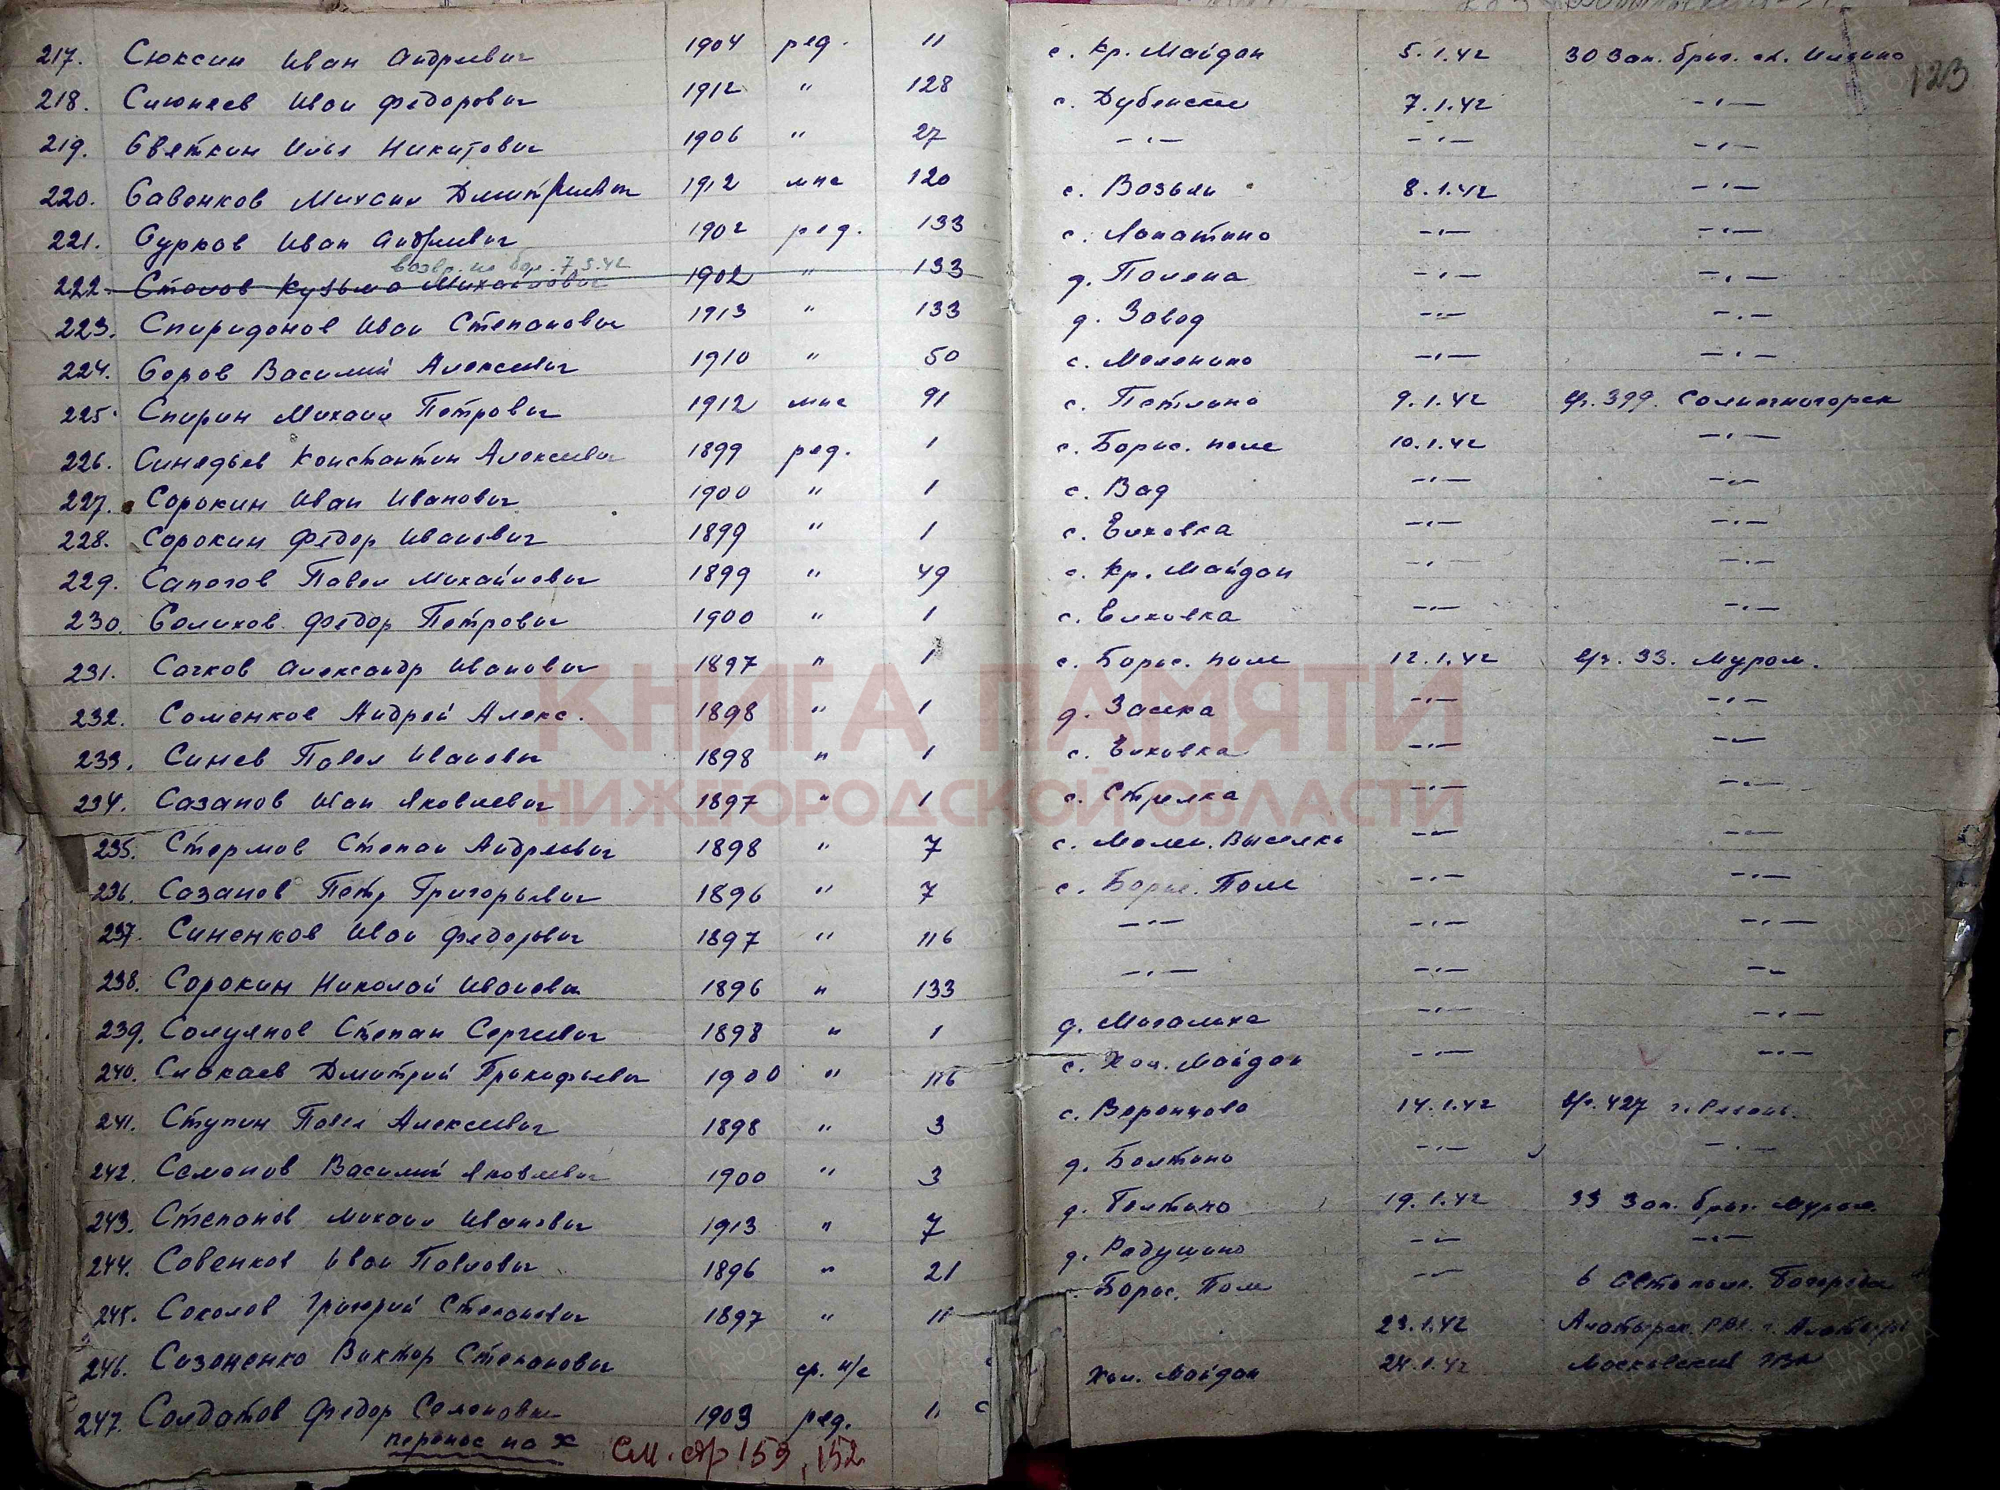 217. Сюксин Иван Андреевич 1904 ред. 11 с. Кр. Майдан 5.1.42 30 Зап. бриг.
218. Иван Федорович 1912 " 128 с. Дубенское 7.1.42 -"-
219. Святкин Илья Никитович 1906 " 27 -"- -"- -"-
220. Савенков Михаил Дмитриевич 1912 мнс 120 с. Возьян 8.1.42 -"-
221. Сурков Иван Андреевич 1902 ред. 133 с. Лопатино -"- -"-
возвр. по бол. 7.3.42
222. Кузьма Михайлович 1902 " 133 д. -"- -"-
223. Спиридонов Иван Степанович 1913 " 133 д. Завод -"- -"-
224. Серов Василий Алексеевич 1910 " 50 с. -"- -"-
225. Спирин Михаил Петрович 1912 мнс 91 с. Петлино 9.1.42 в/ч. 399. Солнечногорск
226. Константин Алексеевич 1899 ред. 1 с. Борис. поле 10.1.42 -"-
227. Сорокин Иван Иванович 1900 " 1 с. Вад -"- -"-
228. Сорокин Федор Иванович 1899 " 1 с. Елховка -"- -"-
229. Сапогов Павел Михайлович 1899 " 49 с. Кр. Майдан -"- -"-
230. Федор Петрович 1900 " 1 с. Елховка -"- -"-
231. Сачков Александр Иванович 1897 " 1 с. Борис. поле 12.1.42 в/ч. 33. Муром.
232. Саменков Андрей Алекс. 1898 " 1 д. Засека -"- -"-
233. Синев Павел Иванович 1898 " 1 с. Елховка -"- -"-
234. Сазанов Иван Яковлевич 1897 " 1 с. Стрелка -"- -"-
235. Степан Андреевич 1898 " 7 с. Мелен. Выселки -"- -"-
236. Сазанов Петр Григорьевич 1896 " 7 с. Борис. Поле -"- -"-
237. Синенков Иван Федорович 1897 " 116 -"- -"- -"-
238. Сорокин Николай Иванович 1896 " 133 -"- -"- -"-
239. Солуянов Степан Сергеевич 1898 " 1 д. -"- -"-
240. Дмитрий Прокофьевич 1900 " 116 с. Хол. Майдан -"- -"-
241. Ступин Павел Алексеевич 1898 " 3 с. Воронцово 14.1.42 в/ч. 427 г. Рязань.
242. Семенов Василий Яковлевич 1900 " 3 д. Болтино -"- -"-
243. Степанов Михаил Иванович 1913 " 7 д. Болтино 19.1.42 33 Зап. бриг. Муром.
244. Савенков Иван Павлович 1896 " 21 д. Радушино -"- -"-
245. Соколов Григорий Степанович 1897 " 11 Борис. Поле -"- 6
246. Сазоненко Виктор Степанович ср. н/с 23.1.42 Алатырск. РВК г. Алатырь
247. Солдатов Федор Семенович 1903 ред. 11 с Хол. Майдан 24.1.42 Московский РВК
перенос на Х
См. стр 159, 152
123
КНИГА ПАМЯТИ
НИЖЕГОРОДСКОЙ ОБЛАСТИ
ПАМЯТЬ НАРОДА